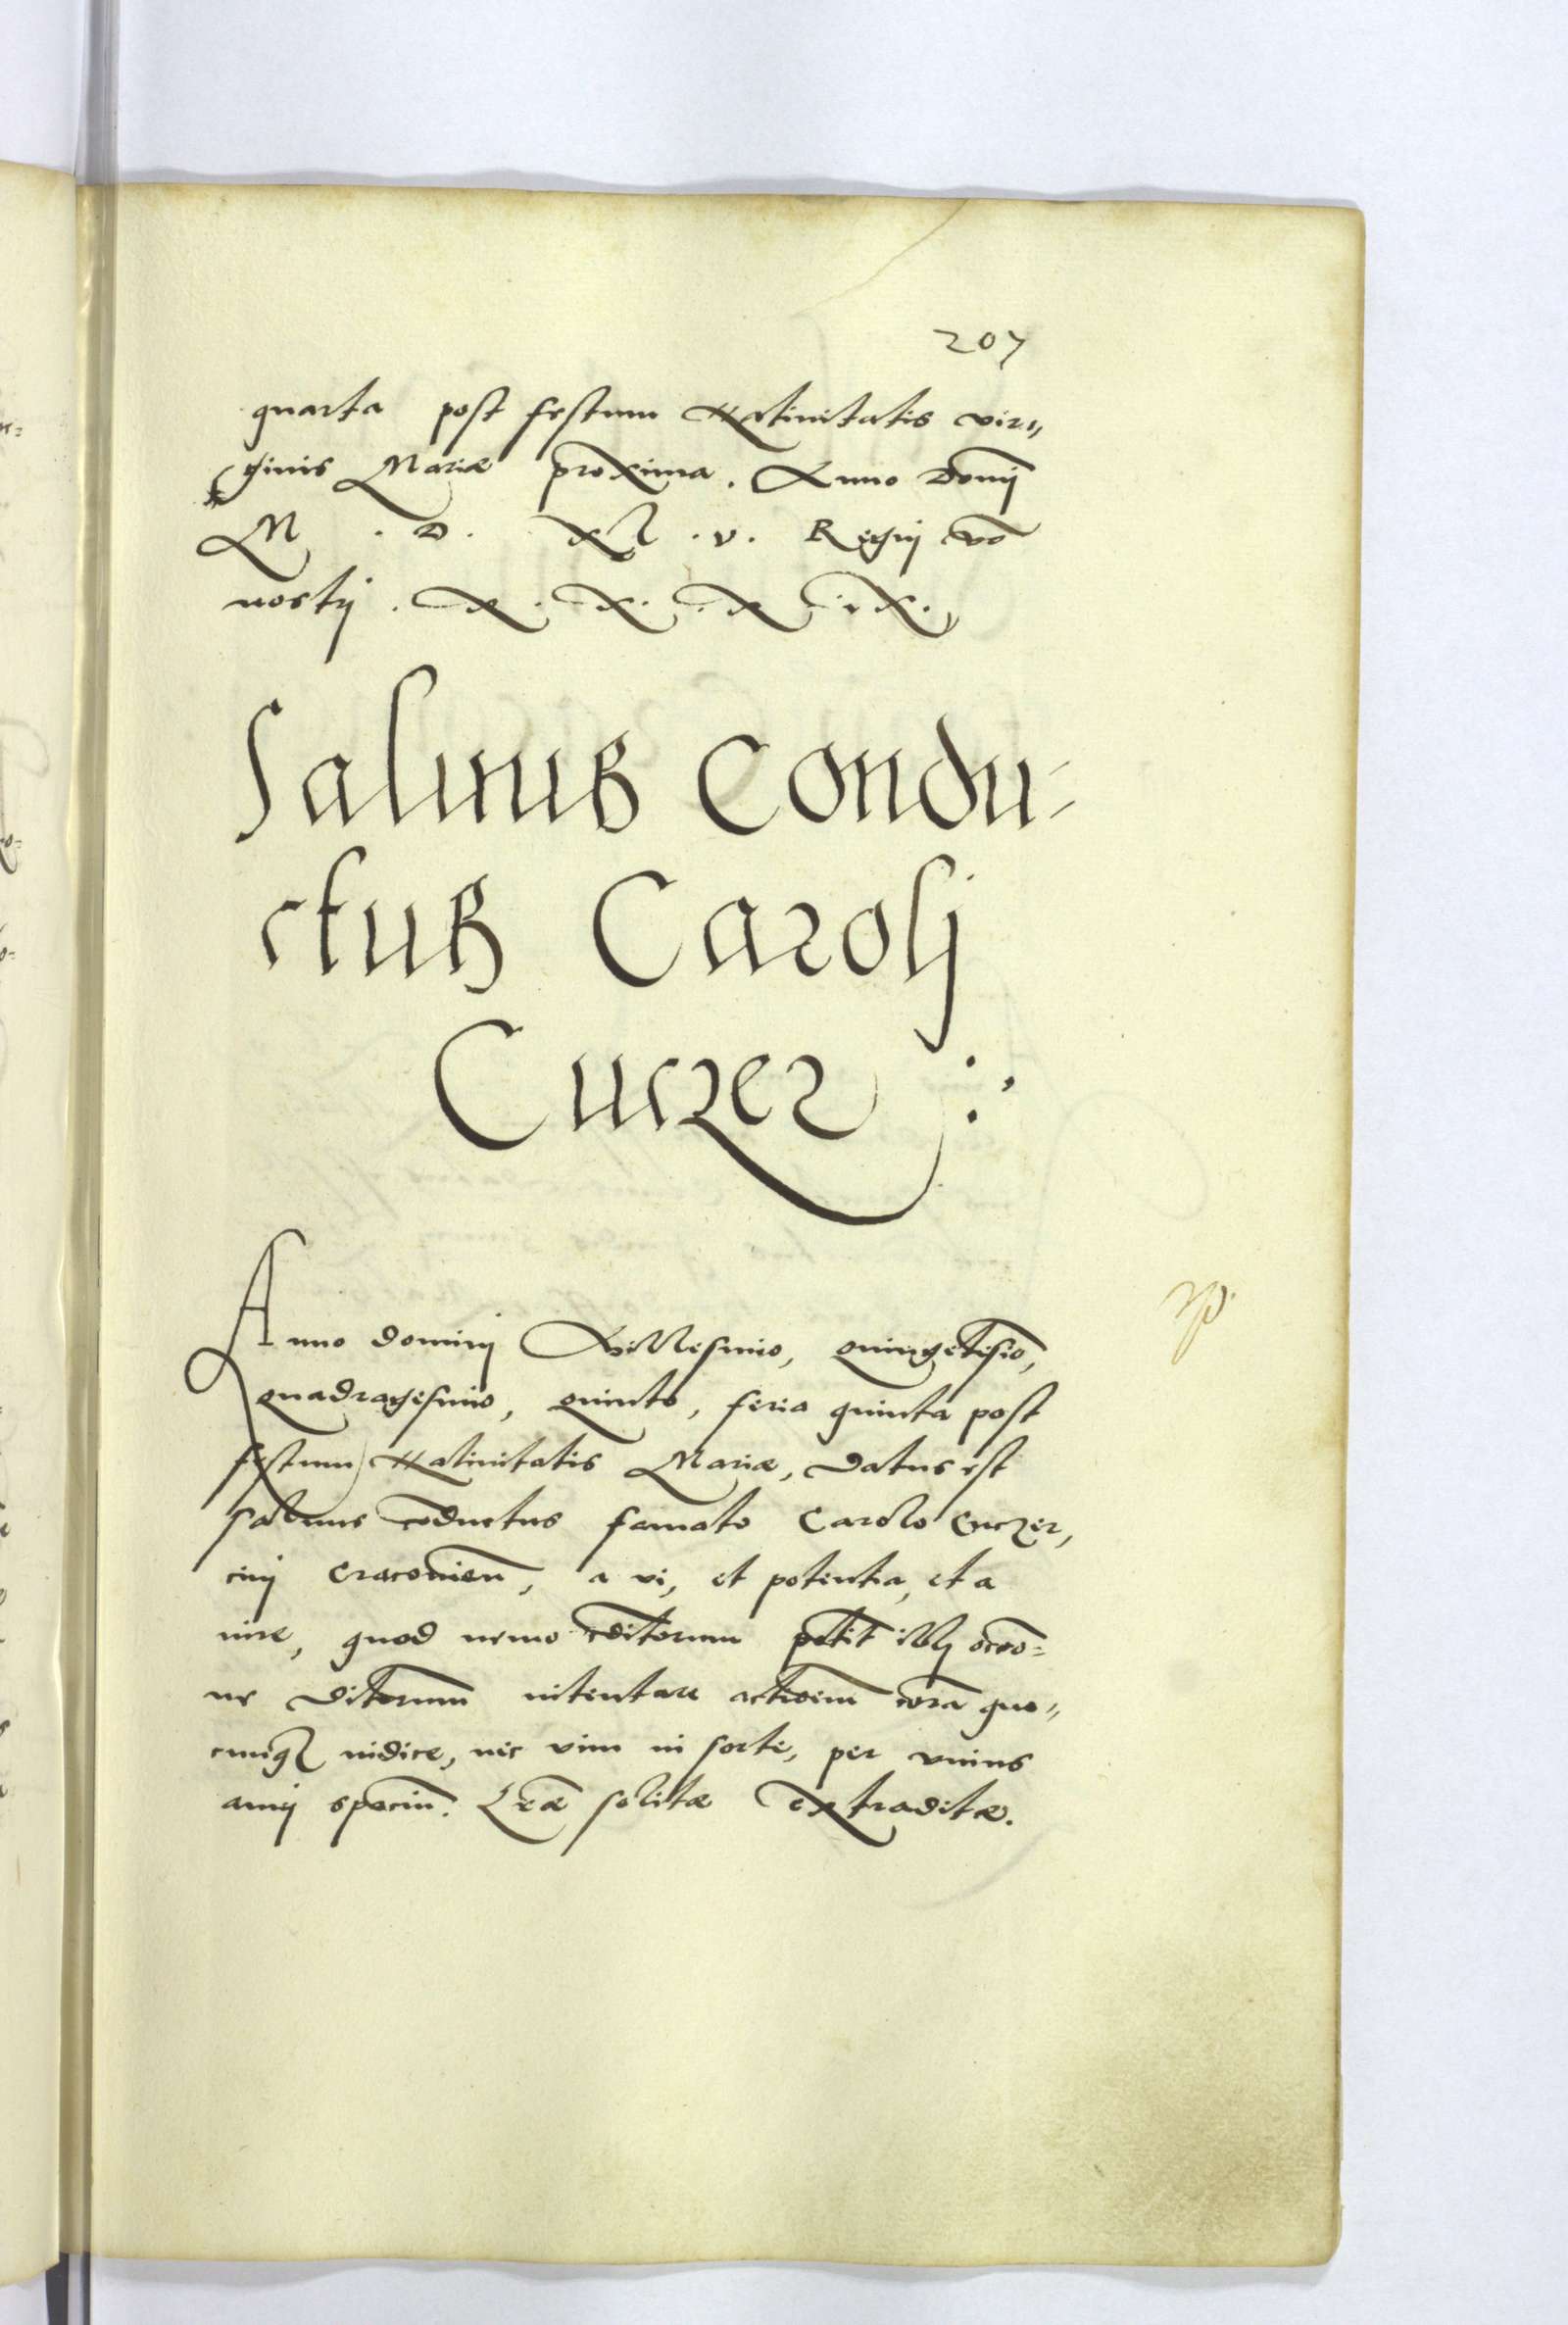 207
quarta post festum Natiuitatis vir„
ginis Mariæ proxima. Anno Domĩj
M . D . XL . v . Regnj vō
nostrj . X . X . X . i X .
Saluus Condu=
ctus Carolj
Cuczer :,
Anno dominj Millesimo, quingẽtesiō,
quadragesimo, quinto, feria quinta post
festum Natiuitatis Mariæ, datus est
saluus cōductus famato Carolo Cuczer,
ciuj Cracouieñ, a vi, et potentia, et a
iure, quod nemo cditorum potit illj occo=
ne ditorum intentare actioem corã quo„
cunq iudice, nec vim inferte, per vnius
annj spaciũ. Lræ solitæ extraditæ.